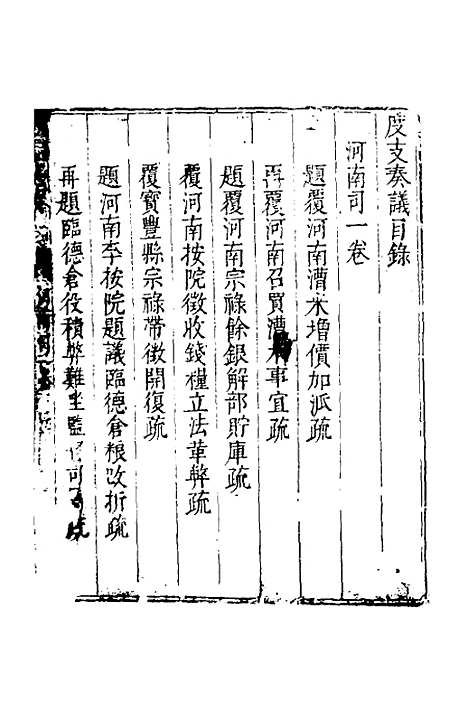 度支奏議目錄
河南司一卷
題覆河南漕米增價加派疏
再覆河南召買漕米事宜疏
題覆河南宗祿餘銀解部貯庫疏
覆河南按院徵收錢糧立法革弊疏
覆寳豐縣宗祿帶徵開復疏
題河南李按院題議臨德倉粮改折疏
再題臨德倉役積弊難 監 疏